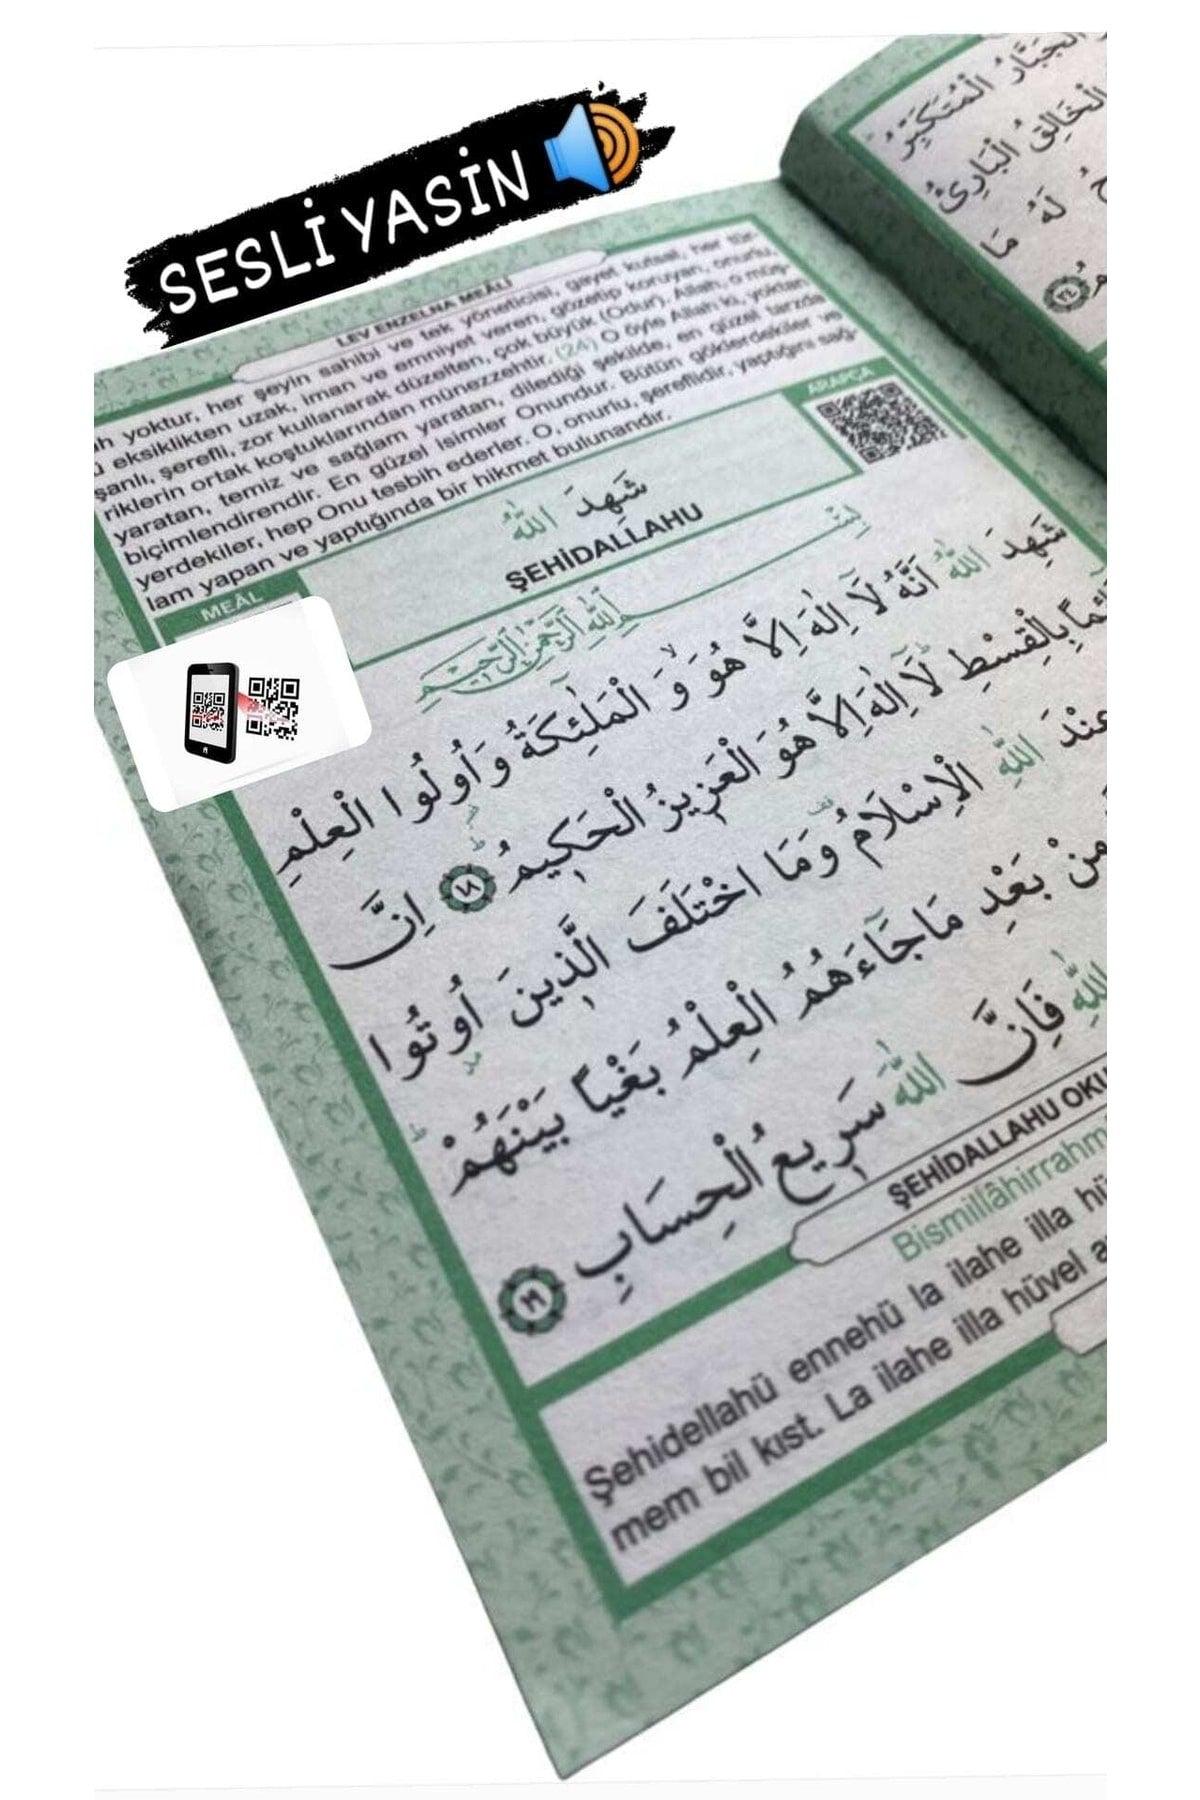 SESLİ YASİN
LEV ENZELNA MEÂLİ
yoktur, her şeyin sahibi ve tek yöneticisi, gayet kutsal, her tür
eksiklikten uzak, iman ve emniyet veren, gözetip koruyan, onurlu,
şanlı, şerefli, zor kullanarak düzelten, çok büyük (Odur). Allah, o müş-
riklerin ortak koştuklarından münezzehtir. (24) O öyle Allah ki, yoktan
yaratan, temiz ve sağlam yaratan, dilediği şekilde, en güzel tarzda
biçimlendirendir. En güzel isimler Onundur. Bütün göklerdekiler ve
yerdekiler, hep Onu tesbih ederler. O, onurlu, şereflidir, yaptığını sağ-
lam yapan ve yaptığında bir hikmet bulunandır.
MEÂL
شَهِدَ اللّٰهُ
ŞEHİDALLAHU
ARAPÇA
بِسْمِ اللّٰهِ الرَّحْمٰنِ الرَّحِيمِ
شَهِدَ اللّٰهُ اَنَّهُ لَٓا اِلٰهَ اِلَّا هُوَۙ وَ الْمَلٰٓئِكَةُ وَ اُولُوا الْعِلْمِ
بِالْقِسْطِۜ لَٓا اِلٰهَ اِلَّا هُوَ الْعَزِيزُ الْحَكِيمُۜ ١٨ اِنَّ
عِنْدَ اللّٰهِ الْاِسْلَامُ وَمَا اخْتَلَفَ الَّذِينَ اُوتُوا
مِنْ بَعْدِ مَا جَٓاءَهُمُ الْعِلْمُ بَغْياً بَيْنَهُمْۜ
اللّٰهِ فَاِنَّ اللّٰهَ سَرِيعُ الْحِسَابِ ١٩
ŞEHİDALLAHU
Şehidellahü ennehü la ilahe illa
mem bil kıst. La ilahe illa hüvel
الْجَبَّارُ الْمُتَكَبِّرُ
الْخَالِقُ الْبَارِئُ
لَهُ مَا
٢٤